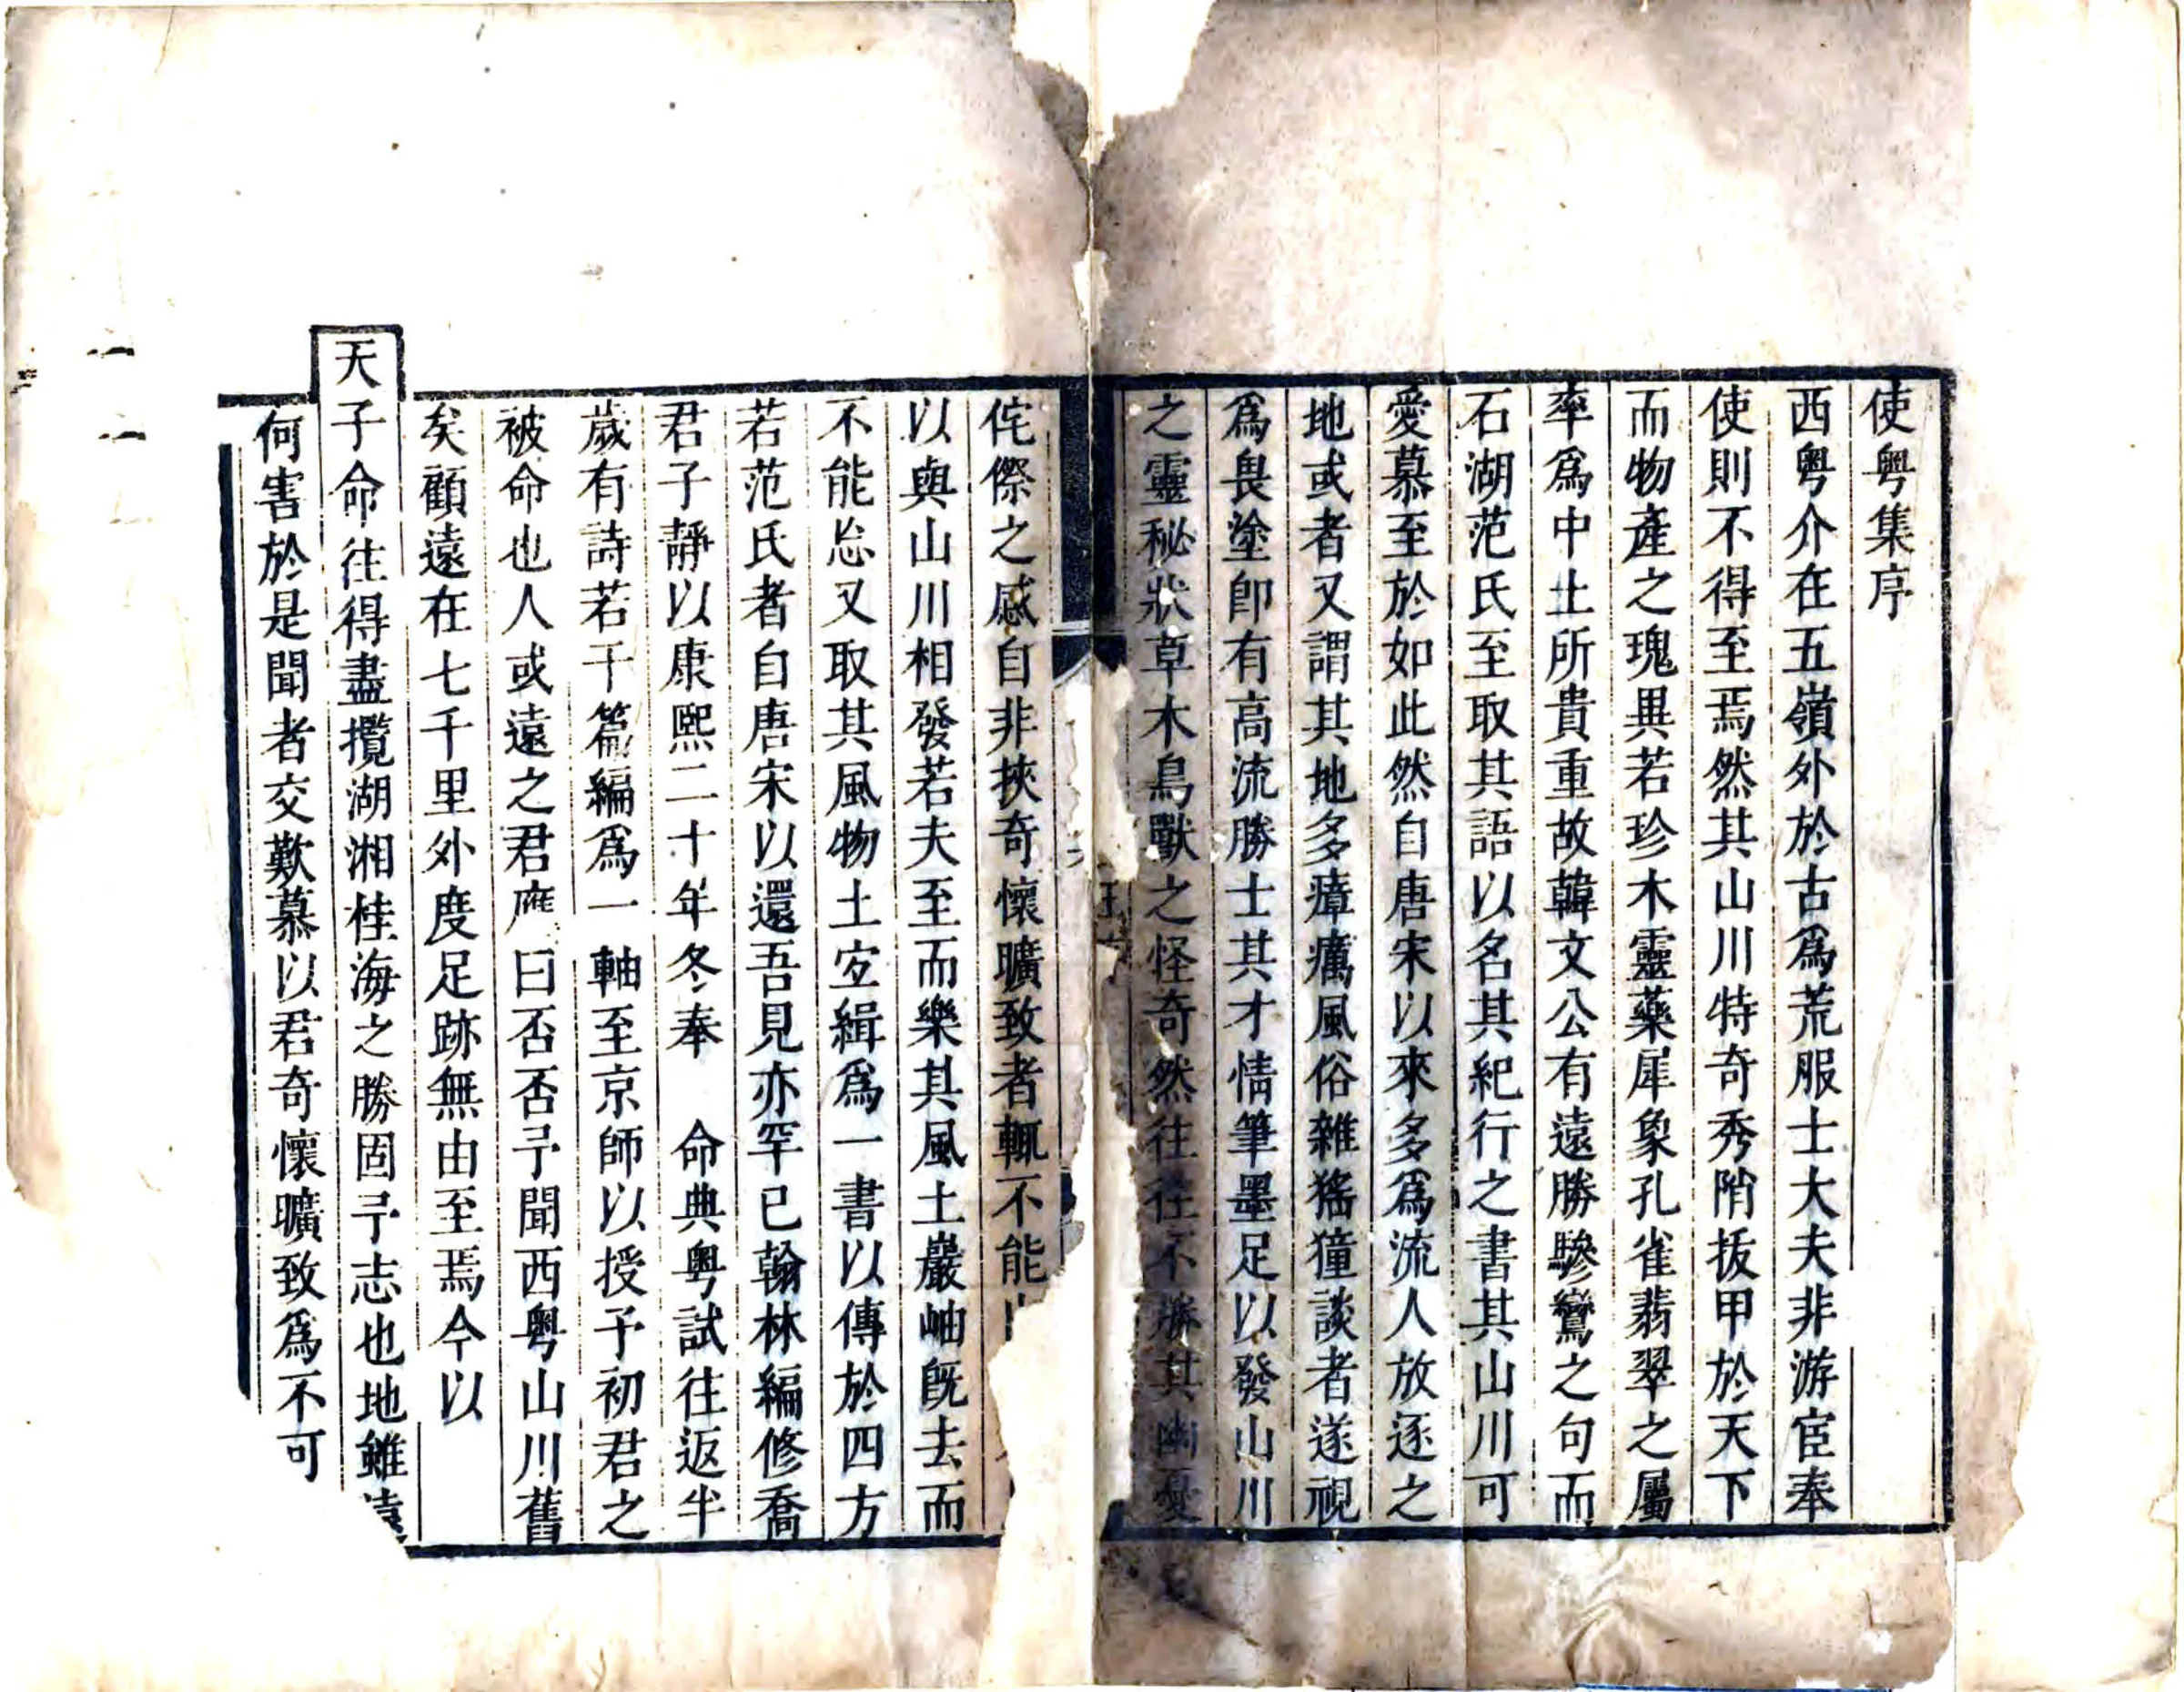 使粤集序
西粤介在五嶺外於古爲荒服士大夫非游宦奉
使則不得至焉然其山川特奇秀陗拔甲於天下
而物產之瑰異若珍木靈藥犀象孔雀翡翠之屬
率爲中土所貴重故韓文公有遠勝驂鸞之句而
石湖范氏至取其語以名其紀行之書其山川可
愛慕至於如此然自唐宋以來多爲流人放逐之
地或者又謂其地多瘴癘風俗雜猺獞談者遂視
爲畏塗卽有高流勝士其才情筆墨足以發山川
之靈秘狀草木鳥獸之怪奇然往往不勝其幽憂
侘傺之感自非挾奇懷曠致者輒不能
以與山川相發若夫至而樂其風土巖岫旣去而
不能忘又取其風物土宐緝爲一書以傳於四方
若范氏者自唐宋以還吾見亦罕已翰林編修喬
君子靜以康熙二十年冬奉 命典粤試往返半
歲有詩若干篇編爲一軸至京師以授予初君之
被命也人或遠之君應曰否否予聞西粤山川舊
矣顧遠在七千里外度足跡無由至焉今以
天子命往得盡攬湖湘桂海之勝固予志也地雖遠
何害於是聞者交歎慕以君奇懷曠致爲不可